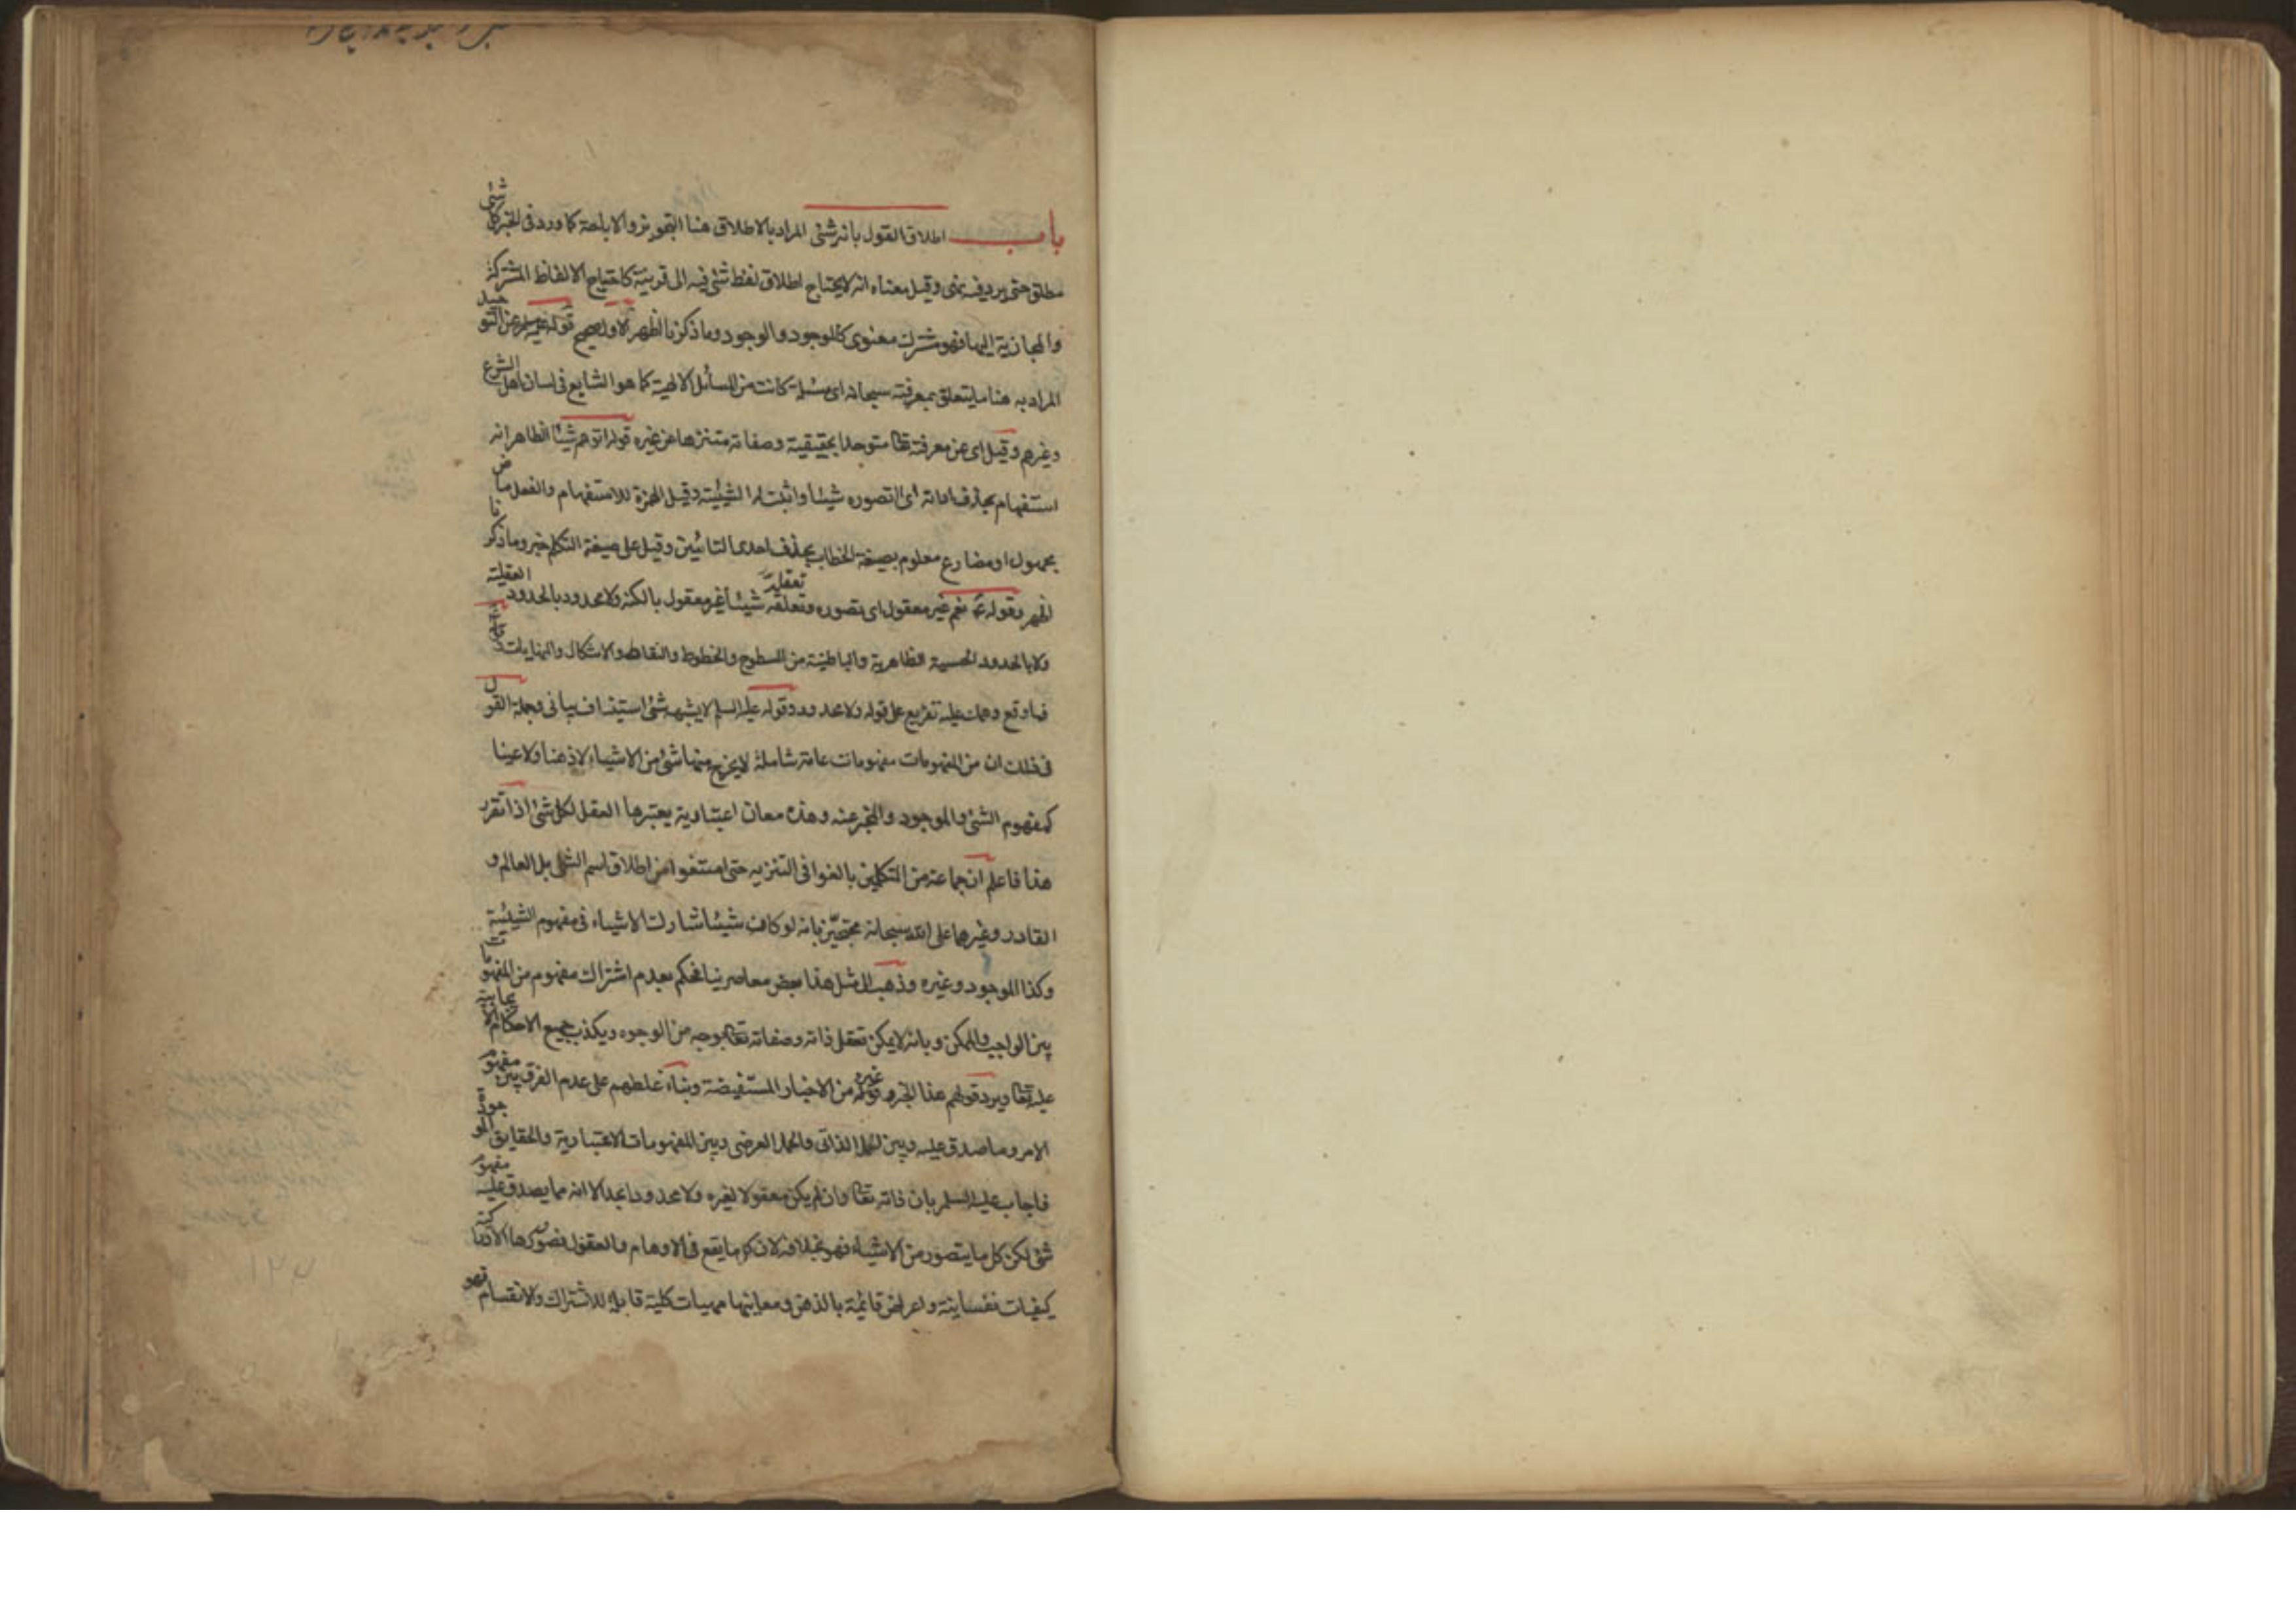 باب اطلاق القول بانه شئ المراد بالاطلاق هنا التجويز والاباحة كما ورد في الخبر كل شئ
مطلق حتى يرد فيه نهى وقيل معناه انه لا يحتاج اطلاق لفظ شئ فيه الى قرينة كاحتياج الالفاظ المشتركة
والمجازية اليها فهو مشترك معنوى كالموجود والوجود وما ذكرنا اظهر الاول صحيح قوله عن التوحيد
المراد به هنا ما يتعلق بمعرفته سبحانه اى مسئلة كانت من المسائل الالهية كما هو الشايع في لسان اهل الشرع
وغيرهم وقيل اى عن معرفته تعا متوحدا بحقيقية وصفاته متنزها عن غيره قوله اتوهم شيئا الظاهر انه
استفهام بحذف اداته اى اتصوره شيئا واثبت له الشيئية وقيل الهمزة للاستفهام والفعل ماض
مجهول او مضارع معلوم بصيغة الخطاب بحذف احدى التائين وقيل على صيغة التكلم خبر وما ذكرنا
اظهر وقوله ع نعم غير معقول اى تصوره وتعلقه تعقله شيئا غير معقول بالكنه ولا محدود بالحدود العقلية
ولا بالحدود الحسية الظاهرية والباطنية من السطوح والخطوط والنقاط والاشكال والنهايات
فما وقع وهمك عليه تفريع على قوله ولا محدود وقوله عليه السلم لا يشبهه شئ استيناف بيانى وجملة القول
فى ذلك ان من المفهومات مفهومات عامة شاملة لا يخرج منها شئ من الاشياء لا ذهنا ولا عينا
كمفهوم الشئ والموجود والمخبر عنه وهذه معان اعتبارية يعتبرها العقل لكل شئ اذا تقرر
هذا فاعلم ان جماعة من المتكلمين بالغوا فى التنزيه حتى امتنعوا من اطلاق اسم الشئ بل العالم و
القادر وغيرهما على الله سبحانه محتجين بانه لو كان شيئا شارك الاشياء فى مفهوم الشيئية
وكذا الموجود وغيره وذهب الى مثل هذا بعض معاصرينا فحكم بعدم اشتراك مفهوم من المفهومات
بين الواجب والممكن وبانه لا يمكن تعقل ذاته وصفاته تعا بوجه من الوجوه ويكذب جميع الاحكام الايجابية
عليه تعا ويرد قولهم هذا الخبر وغيره من الاخبار المستفيضة وبناء غلطهم على عدم الفرق بين مفهوم
الامر وما صدق عليه وبين الحمل الذاتى والحمل العرضى وبين المفهومات الاعتبارية والحقايق الموجودة
فاجاب عليه السلم بان ذاته تعا وان لم يكن معقولا لغيره ولا محدودا بحد الا انه مما يصدق عليه مفهوم
شئ لكن كل ما يتصور من الاشياء فهو بخلافه لان كل ما يقع فى الاوهام والعقول فصورها الادراكية
كيفيات نفسانية واعراض قائمة بالذهن ومعانيها مهيات كلية قابلة للاشتراك والانقسام فهو